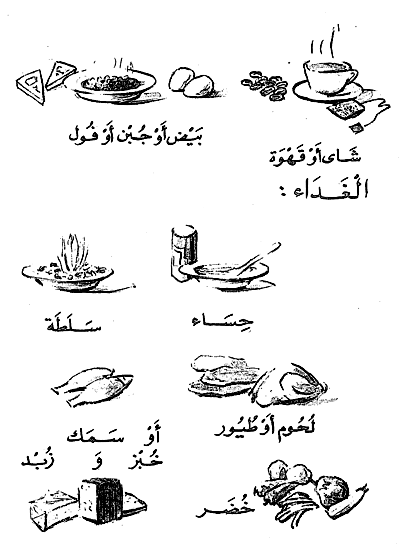 بَيْض أَوْ جُبْن أَوْ فُول
شَاى أَوْ قَهْوَة
الْغَدَاء :
حِسَاء
سَلَطَة
لُحُوم أَوْ طُيُور
أَوْ سَمَك
خُبْز وَ زُبْد
خُضَر